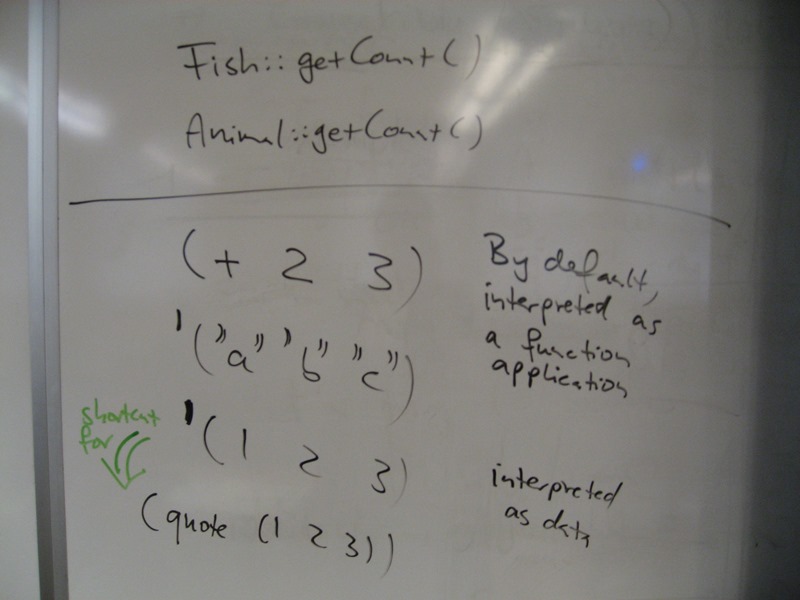 Fish::getCount()
Animal::getCount()
(+ 2 3)
By default,
interpreted as
a function
application
'("a" "b" "c")
shortcut
for
'(1 2 3)
(quote (1 2 3))
interpreted
as data